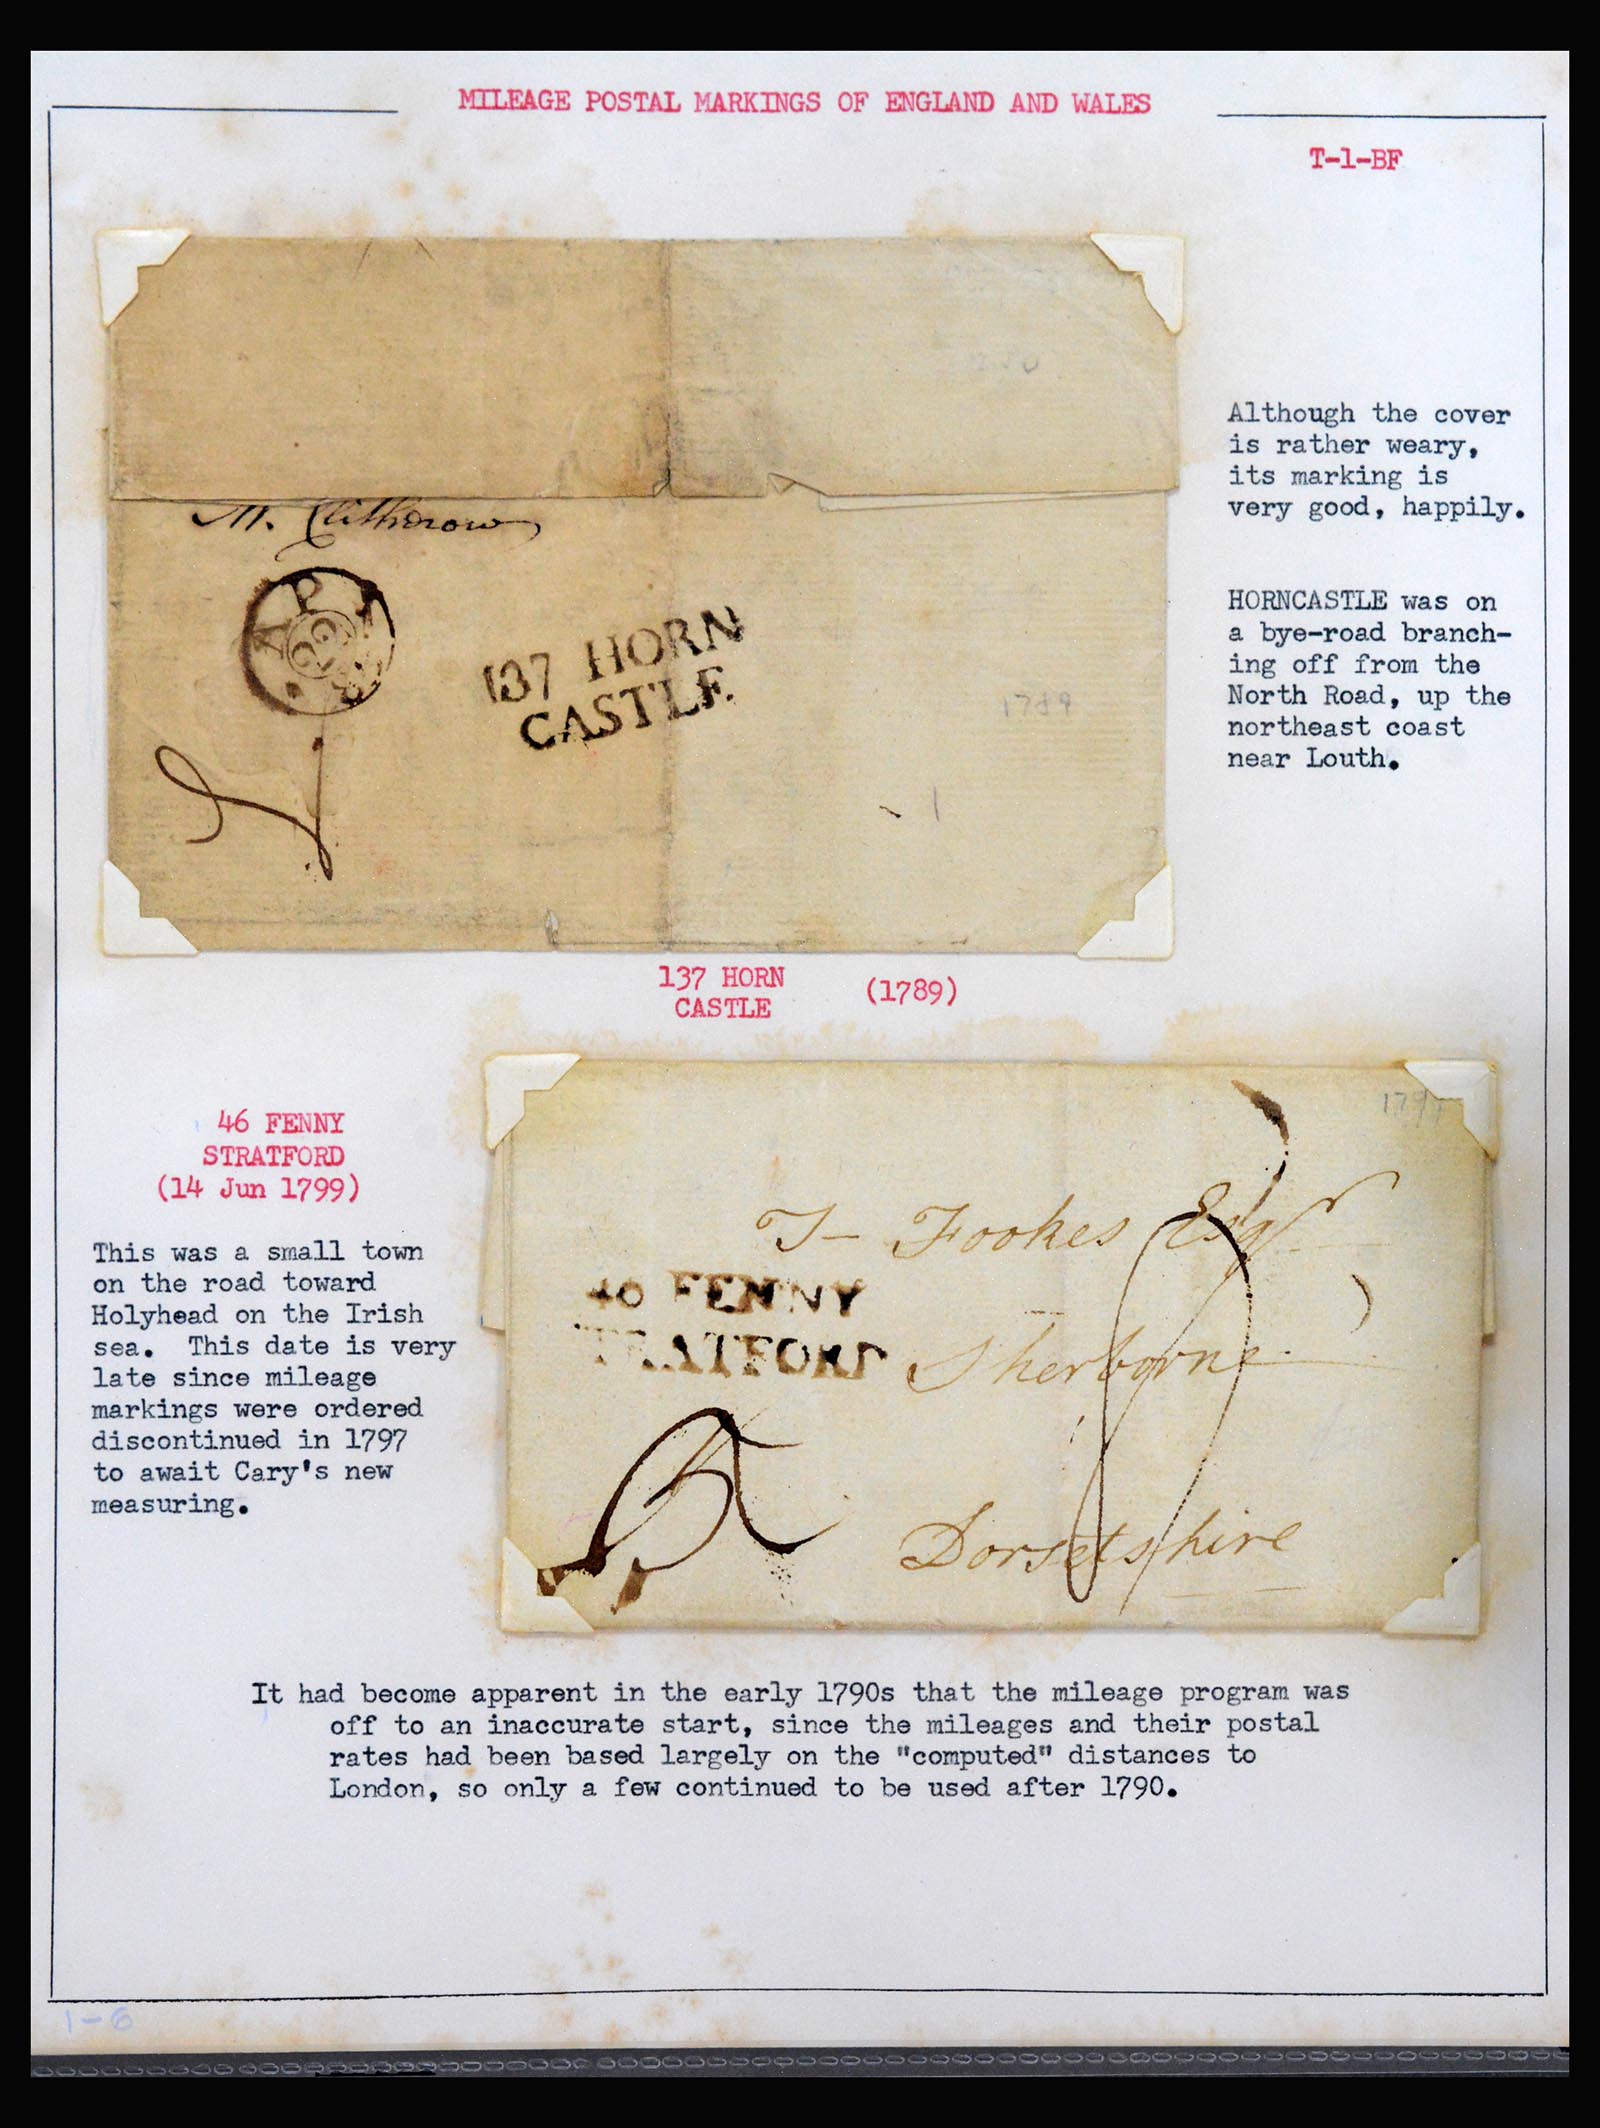 MILEAGE POSTAL MARKINGS OF ENGLAND AND WALES
T-1-BF
Although the cover
is rather weary,
its marking is
very good, happily.
M. Clitherow
AP
137 HORN
CASTLE
1789
HORNCASTLE was on
a bye-road branch-
ing off from the
North Road, up the
northeast coast
near Louth.
137 HORN
CASTLE
(1789)
46 FENNY
STRATFORD
(14 Jun 1799)
This was a small town
on the road toward
Holyhead on the Irish
sea. This date is very
late since mileage
markings were ordered
discontinued in 1797
to await Cary's new
measuring.
T- Fookes Esqr
46 FENNY
TRATFORD
Sherborne
Dorsetshire
It had become apparent in the early 1790s that the mileage program was
off to an inaccurate start, since the mileages and their postal
rates had been based largely on the "computed" distances to
London, so only a few continued to be used after 1790.
1-6